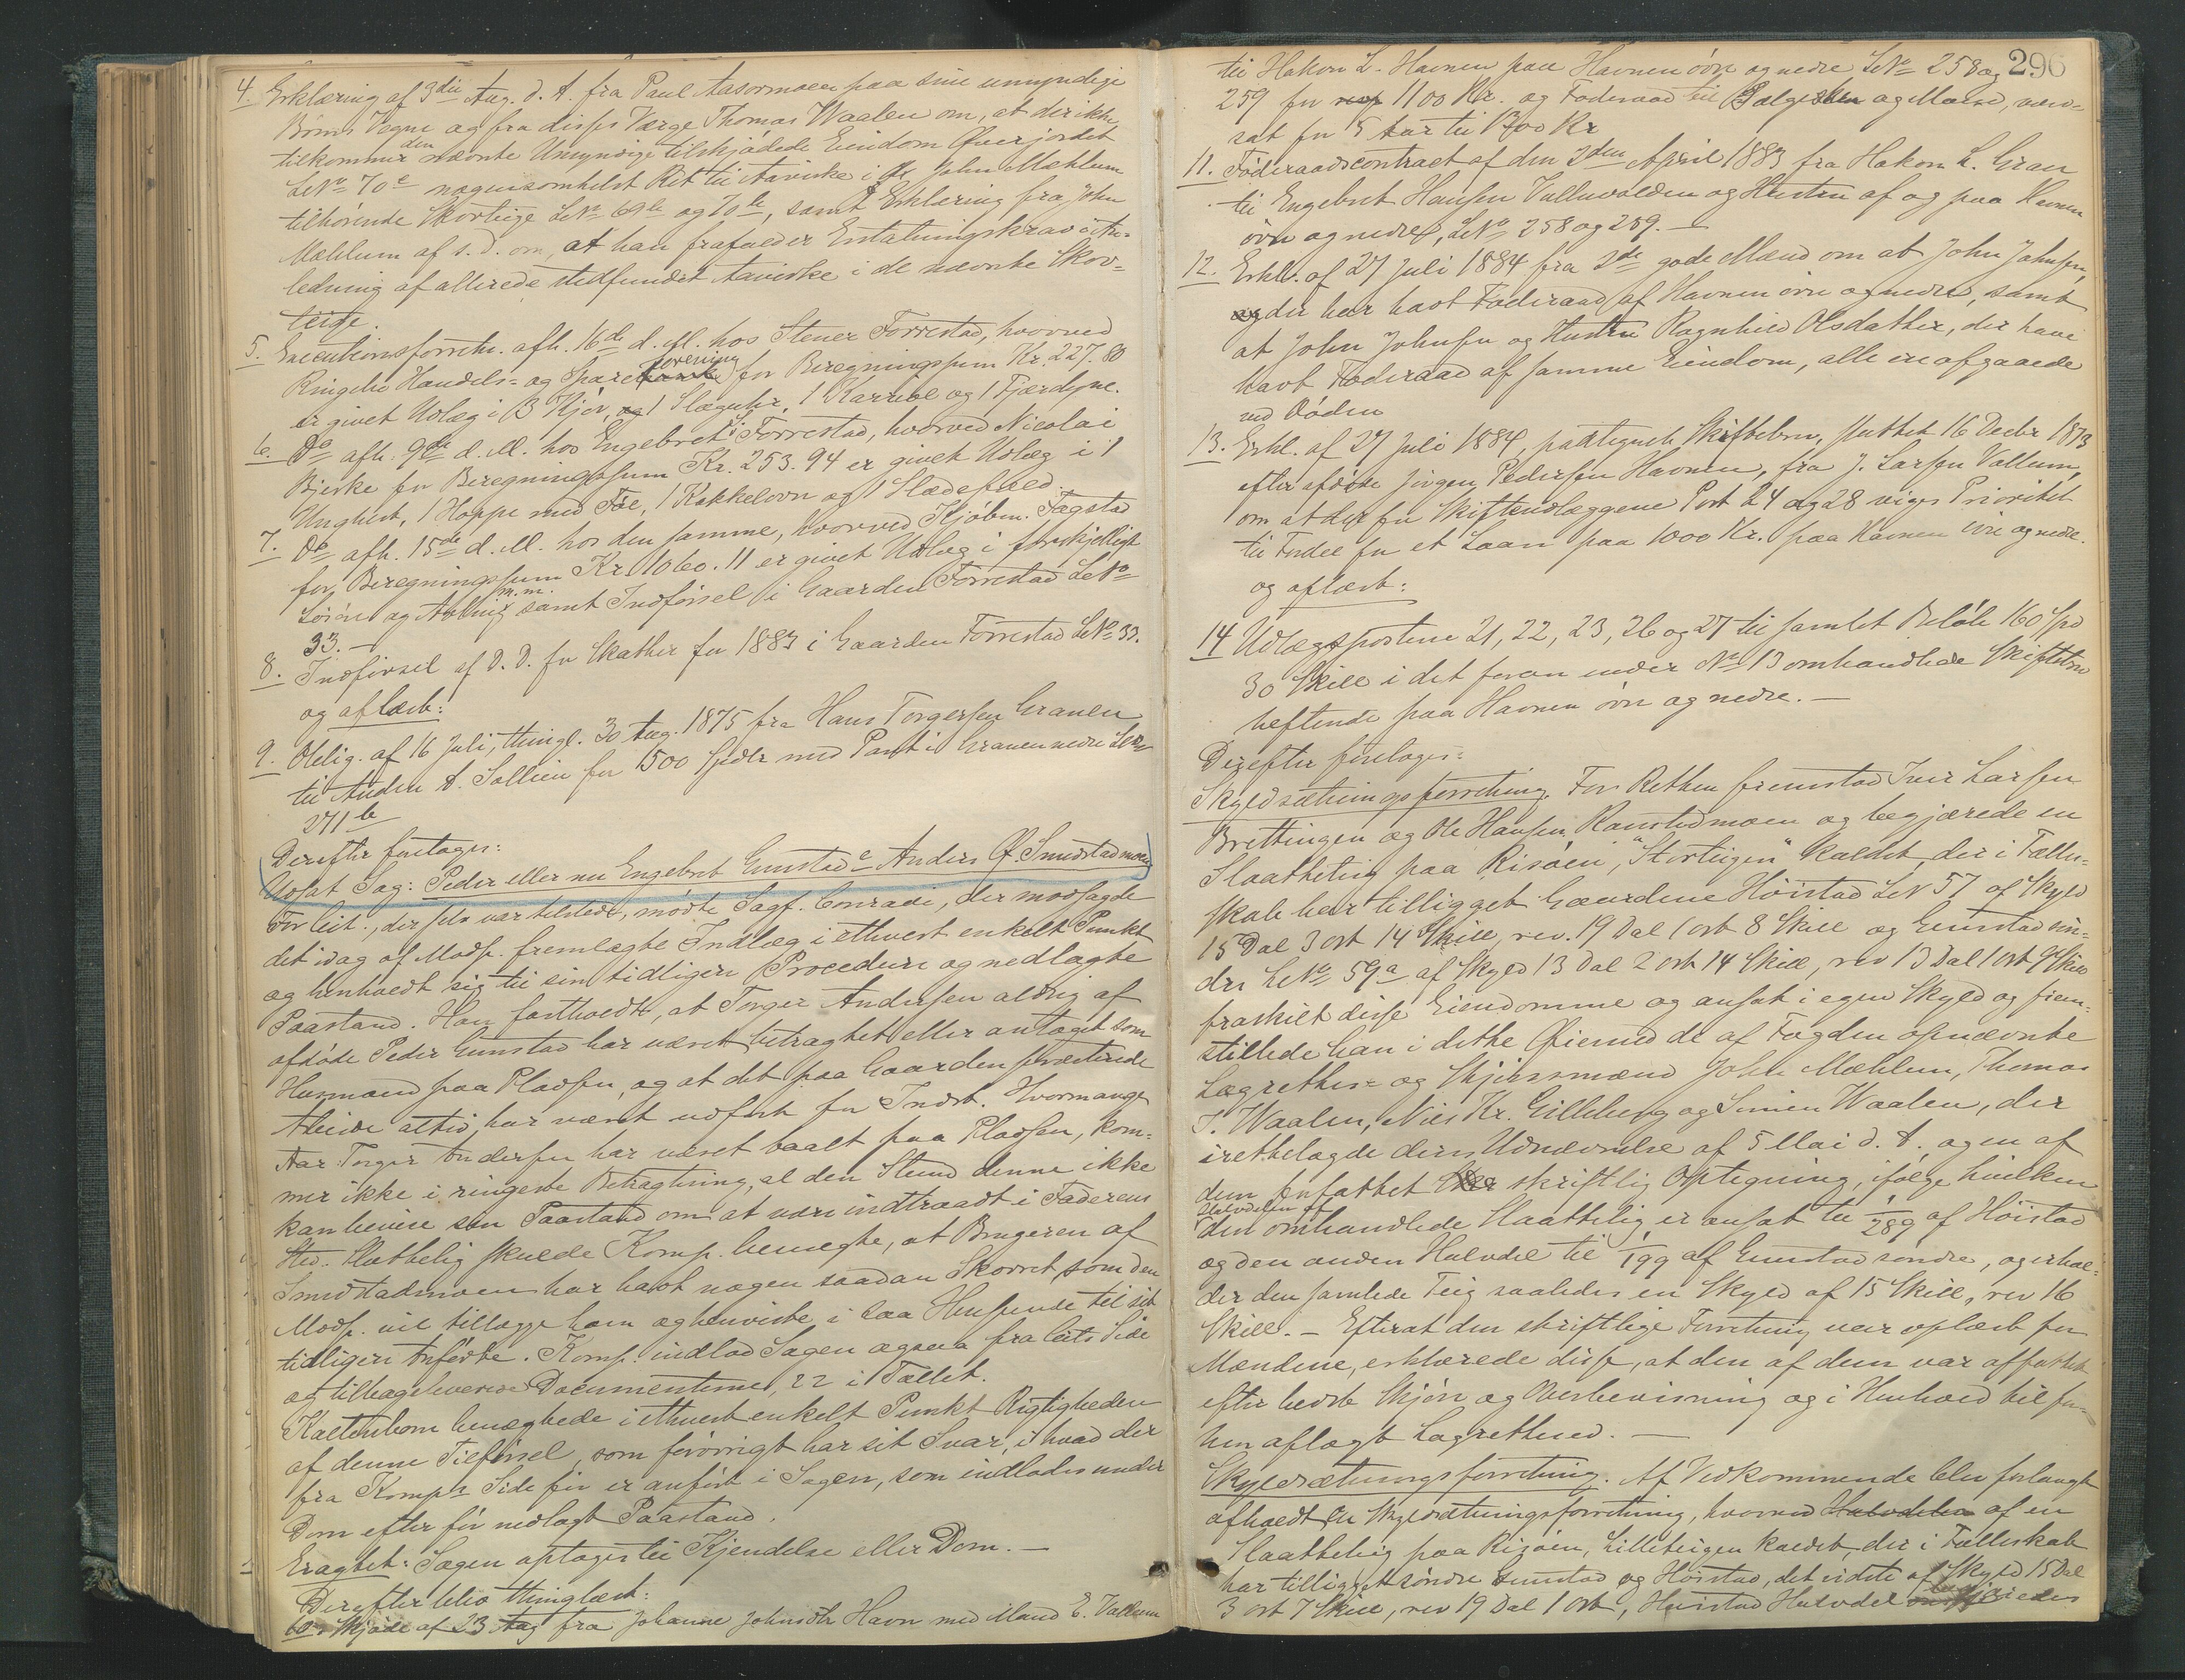 4. Erklæring af 3die Aug. d. A. fra Paul Aasormoen paa sine umyndige
Børns Vegne og fra disses Værge Thomas Waalen om, at der ikke
tilkommer den nævnte Umyndige tilskjødede Eiendom Øverjordet
LNo 70c nogensomhelst Ret til Havnke i de John Mæhlum
tilhørende Skovteige LNo 69b og 70b, samt Erklæring fra John
Mæhlum af s. D. om, at han frafalder Erstatningskrav i An-
ledning af allerede stedfundet Havnke i de nævnte Skov-
teige.
5. Executionsforretn. afh. 16de d. M. hos Stener Forrestad, hvorved
Ringebu Handels- og Spareforening for Beregningssum Kr. 227.80
er givet Udlæg i 3 Kjør, 1 Slaguhr, 1 Karriol og 1 Fjærdyne.
6. Do afh. 9de d. M. hos Engebret Forrestad, hvorved Nicolai
Bjerke for Beregningssum Kr. 253.94 er givet Udlæg i 1
Unghest, 1 Hoppe med Føl, 1 Kakkelovn og 1 Slædefæld.
7. Do afh. 15de d. M. hos den samme, hvorved Kjøbm. Fagstad
for Beregningssum Kr. 1060.11 er givet Udlæg i forskjelligt
Løsøre og Avling m.m. samt Indførsel i Gaarden Forrestad LNo
33. —
8. Indførsel af D. D. for Skatter for 1883 i Gaarden Forrestad LNo 33.
og aflæst:
9. Oblig. af 16 Juli, thingl. 30 Aug. 1875 fra Hans Torgersen Granen
til Anders A. Sollien for 1500 Spdlr med Pant i Granen nedre LNo
271b
Derefter foretoges:
Udsat Sag: Peder eller nu Engebret Gunstad c Anders O. Smidstadmoen
For Cit., der selv var tilstede, mødte Sagf. Conradi, der modsagde
det idag af Modp. fremlagte Indlæg i ethvert enkelt Punkt
og henholdt sig til sin tidligere Procedure og nedlagte
Paastand. Han fastholdt, at Torger Andersen aldrig af
afdøde Peder Gunstad har været betragtet eller antaget som
Husmand paa Pladsen, og at det paa Gaarden præsterede
Arbeide altid har været udført for Indst. Hvormange
Aar Torger Andersen har været baalt paa Pladsen, kom-
mer ikke i ringeste Betragtning, al den Stund denne ikke
kan bevise sin Paastand om at være indtraadt i Faderens
Sted. Slettelig skulde Komp. benegte, at Brugeren af
Smidstadmoen har havt nogen saadan Skovret, som den
Modp. vil tillægge ham og henviste i saa Henseende til sit
tidligere Anførte. Komp. indlod Sagen ogsaa fra Cits Side
og tilbageleverede Documenterne, 22 i Tallet.
Kaltenborn benægtede i ethvert enkelt Punkt Rigtigheden
af denne Tilførsel, som forøvrigt har sit Svar, i hvad der
fra Komps Side før er anført i Sagen, som indlades under
Dom efter før nedlagt Paastand.
Eragtet: Sagen optages til Kjendelse eller Dom. —
Derefter blev thinglæst:
10. Skjøde af 23 Aug fra Johanne Johnsdtr Havn med Mand E. Vallum
296
til Hakon L. Havnen paa Havnen øvre og nedre LNo 258 og
259 for 1100 Kr. og Føderaad til Sælgersken og Mand, værd-
sat for 5 Aar til 1700 Kr
11. Føderaadscontract af den 2den April 1883 fra Hakon L. Gran
til Engebret Hansen Vallumvolden og Hustru af og paa Havnen
øvre og nedre, LNo 258 og 259. —
12. Erkl. af 27 Juli 1884 fra 2de gode Mænd om at John Johnsen,
der har havt Føderaad af Havnen øvre og nedre, samt
at John Johnsen og Hustru Ragnhild Olsdatter, der have
havt Føderaad af samme Eiendom, alle ere afgaaede
ved Døden
13. Erkl. af 27 Juli 1884, paategnet Skiftebrev, sluttet 16 Decbr 1873
efter afdøde Jørgen Pedersen Havnen, fra J. Larsen Vallum,
om at der for Skifteudlæggene Post 24 og 28 viges Prioritet
til Fordel for et Laan paa 1000 Kr. paa Havnen øvre og nedre.
og aflæst:
14 Udlægsposterne 21, 22, 23, 26 og 27 til samlet Beløb 160 Spd
30 Skill i det foran under No 13 omhandlede Skiftebrev
heftende paa Havnen øvre og nedre. —
Derefter foretoges:
Skyldsætningsforretning. For Retten fremstod Iver Larsen
Brettingen og Ole Hansen Ramstadmoen og begjærede en
Slaatteteig paa Risøen, "Storteigen" kaldet, der i Fælles-
skab har tilligget Gaardene Høistad LN 57 af Skyld
15 Dal 3 ort 14 Skill, rev. 19 Dal 1 ort 8 Skill og Gunstad søn-
dre LNo 59a af Skyld 13 Dal 2 ort 14 Skill, rev 13 Dal 1 ort 9 Skill
fraskilt disse Eiendomme og ansat i egen Skyld og frem-
stillede han i dette Øiemed de af Fogden opnævnte
Lagrettes- og Skjønsmænd John Mæhlum, Thomas
T. Waalen, Nils Kr. Gilleberg og Simen Waalen, der
irettelagde deres Udnævnelse af 5 Mai d. A. og en af
dem forfattet skriftlig Optegning, ifølge hvilken
Halvdelen af den omhandlede Slaatteteig er ansat til 1/289 af Høistad
og den anden Halvdel til 1/199 af Gunstad søndre, og erhol-
der den samlede Teig saaledes en Skyld af 15 Skill, rev 16
Skill. — Efterat den skriftlige Forretning var oplæst for
Mændene, erklærede disse, at den af dem var affattet
efter bedste Skjøn og Overbevisning og i Henhold til for-
hen aflagt Lagretteed. —
Skyldsætningsforretning. Af Vedkommende blev forlangt
afholdt en Skyldsætningsforretning, hvorved Halvdelen af en
Slaatteteig paa Risøen, Lilleteigen kaldet, der i Fælleskab
har tilligget søndre Gunstad og Høistad, det sidste af Skyld 15 Dal
3 ort 7 Skill, rev 19 Dal 1 ort, Høistad Halvdel